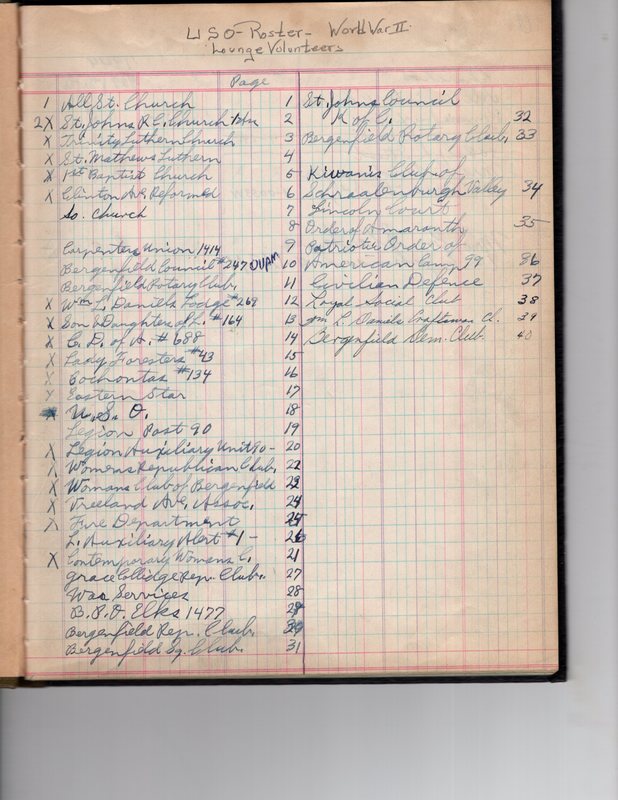 USO-Roster- World War II
Lounge Volunteers
Page
1 All St. Church 1
2X St. Johns R.C. Church 2
X Trinity Luthern Church 3
X St. Mathews Luthern 4
X 1st Baptist Church 5
X Clinton Ave Reformed 6
So. Church 7
8
Carpenters Union 1414 9
Bergenfield Council #247 OUAM 10
Bergenfield Rotary Club, 11
X Wm L. Daniels Lodge #269 12
X Son & Daughters of L. #164 13
X C. D. of A. # 688 14
X Lady Foresters #43 15
X Cochontas #134 16
Y Eastern Star 17
U. S. O. 18
Legion Post 90 19
X Legion Auxiliary Unit 90- 20
X Womens Republican Club, 22
X Womans Club of Bergenfield
X Vreeland Ave. Assoc. 24
X Fire Department
L. Auxiliary Alert #1-
X Contemporary Womans C. 21
Grace Collidge Rep. Club. 27
War Services 28
B. P. O. Elks 1477
Bergenfield Rep. Club,
Bergenfield Sq. Club. 31
St. Johns Council
K of C. 32
Bergenfield Rotary Club, 33
Kiwanis Club of
Schraalenburgh Valley 34
Lincoln Court
Order of Amaranth 35
Patriotic Order of
American Camp 99 86
Civilian Defence 37
Loyal Social Club 38
Wm L. Daniels Craftsman Cl. 39
Bergenfield Dem. Club. 40